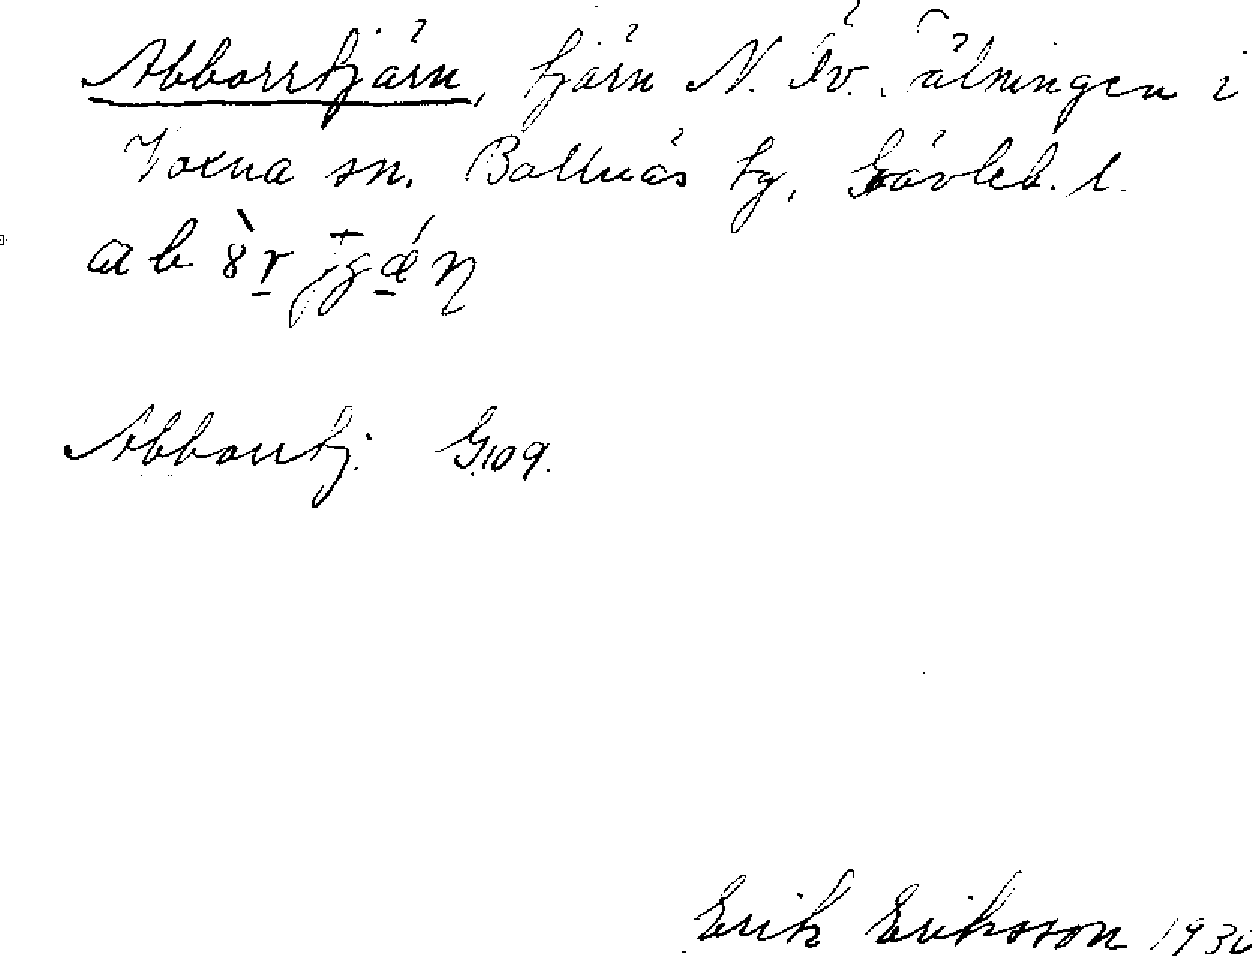 Abborrtjärn, tjärn N. Öv. Tälningen i
Voxna sn. Bollnäs tg, Gävleb. l.
Abborrtj. G109.
Erik Eriksson 1930